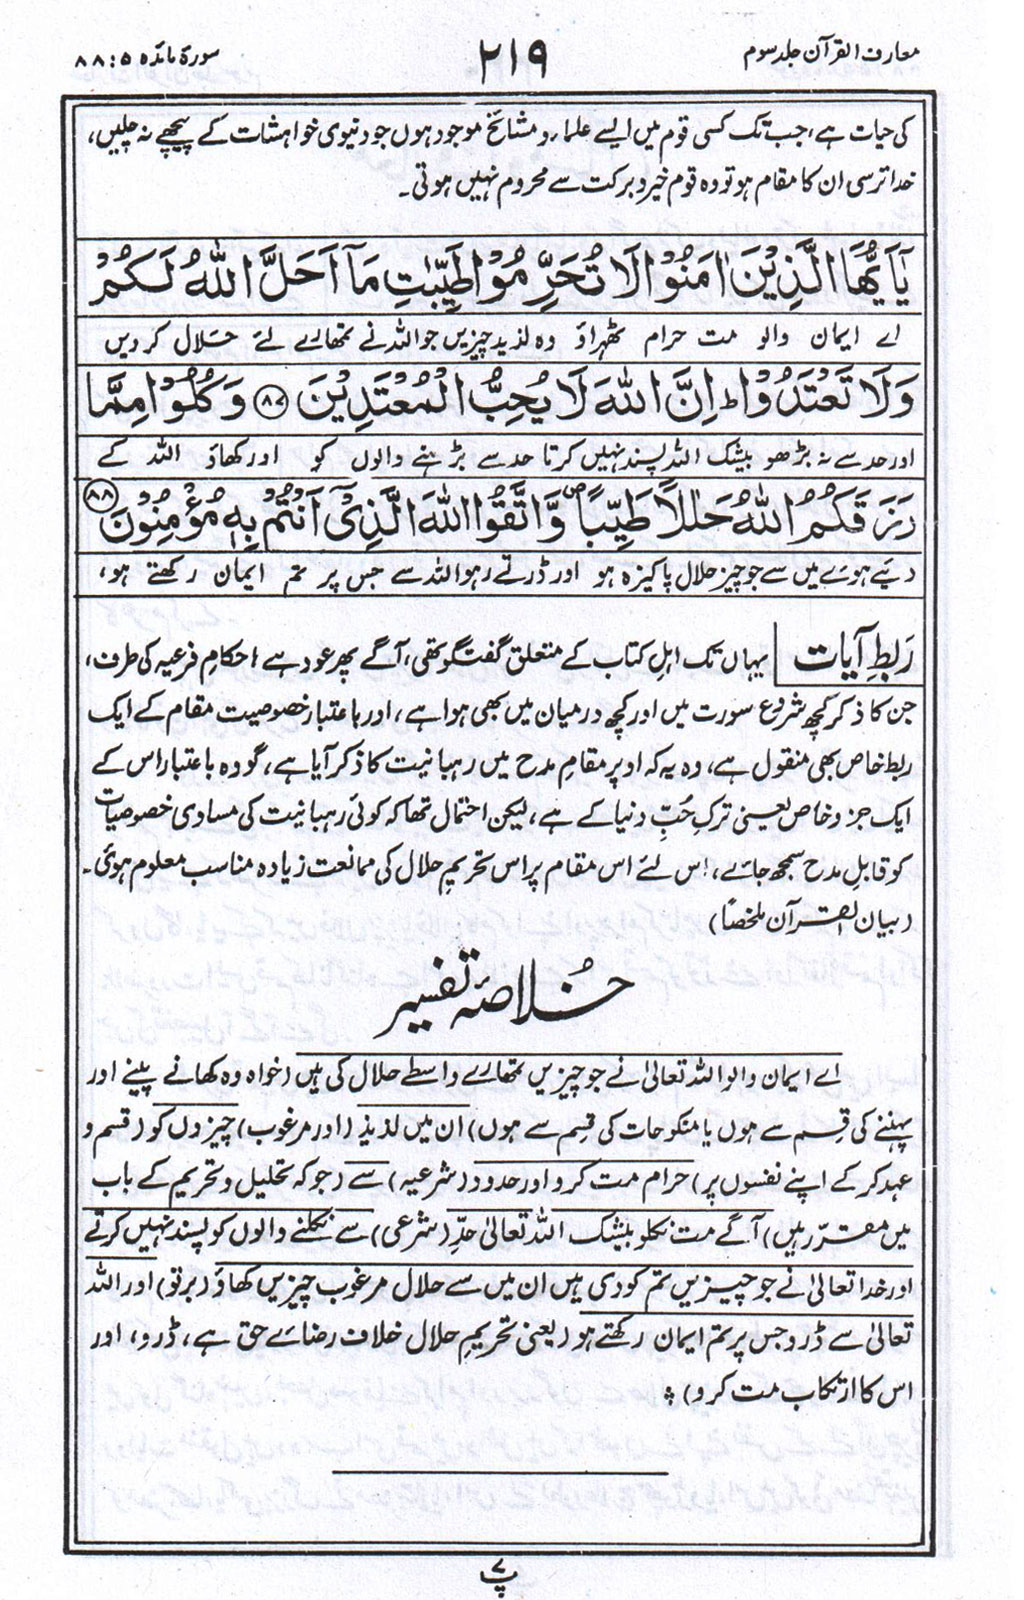 معارف القرآن جلد سوم
۲۱۹
سورۃ مائدہ ۵ : ۸۸
کی حیات ہے، جب تک کسی قوم میں ایسے علماء و مشائخ موجود ہوں جو دنیوی خواہشات کے پیچھے نہ چلیں،
خدا ترسی ان کا مقام ہو تو وہ قوم خیر و برکت سے محروم نہیں ہوتی۔
يٰٓاَيُّهَا الَّذِيْنَ اٰمَنُوْا لَا تُحَرِّمُوْا طَيِّبٰتِ مَآ اَحَلَّ اللّٰهُ لَكُمْ
اے ایمان والو مت حرام ٹھہراؤ وہ لذیذ چیزیں جو اللہ نے تمھارے لئے حلال کر دیں
وَلَا تَعْتَدُوْا ط اِنَّ اللّٰهَ لَا يُحِبُّ الْمُعْتَدِيْنَ ﴿۸۷﴾ وَكُلُوْا مِمَّا
اور حد سے نہ بڑھو بیشک اللہ پسند نہیں کرتا حد سے بڑھنے والوں کو اور کھاؤ اللہ کے
رَزَقَكُمُ اللّٰهُ حَلٰلًا طَيِّبًا ص وَّاتَّقُوا اللّٰهَ الَّذِيْٓ اَنْتُمْ بِهٖ مُؤْمِنُوْنَ ﴿۸۸﴾
دیئے ہوئے میں سے جو چیز حلال پاکیزہ ہو اور ڈرتے رہو اللہ سے جس پر تم ایمان رکھتے ہو،
ربط آیات یہاں تک اہل کتاب کے متعلق گفتگو تھی، آگے پھر عود ہے احکامِ فرعیہ کی طرف،
جن کا ذکر کچھ شروع سورت میں اور کچھ درمیان میں بھی ہوا ہے، اور باعتبار خصوصیت مقام کے ایک
ربط خاص بھی منقول ہے، وہ یہ کہ اوپر مقامِ مدح میں رہبانیت کا ذکر آیا ہے، گو وہ باعتبار اس کے
ایک جزو خاص یعنی ترکِ حُبِّ دنیا کے ہے، لیکن احتمال تھا کہ کوئی رہبانیت کی مساوی خصوصیات
کو قابلِ مدح سمجھ جائے، اس لئے اس مقام پر اس تحریمِ حلال کی ممانعت زیادہ مناسب معلوم ہوئی۔
(بیان القرآن ملخصاً)
خُلاصۂ تفسیر
اے ایمان والو اللہ تعالیٰ نے جو چیزیں تمھارے واسطے حلال کی ہیں (خواہ وہ کھانے پینے اور
پہننے کی قسم سے ہوں یا منکوحات کی قسم سے ہوں) ان میں لذیذ (اور مرغوب) چیزوں کو (قسم و
عہد کر کے اپنے نفسوں پر) حرام مت کرو اور حدود (شرعیہ) سے (جو کہ تحلیل و تحریم کے باب
میں مقرّر ہیں) آگے مت نکلو بیشک اللہ تعالیٰ حدِّ (شرعی) سے نکلنے والوں کو پسند نہیں کرتے
اور خدا تعالیٰ نے جو چیزیں تم کو دی ہیں ان میں سے حلال مرغوب چیزیں کھاؤ (برتو) اور اللہ
تعالیٰ سے ڈرو جس پر تم ایمان رکھتے ہو (یعنی تحریم حلال خلاف رضائے حق ہے، ڈرو، اور
اس کا ارتکاب مت کرو) ؛